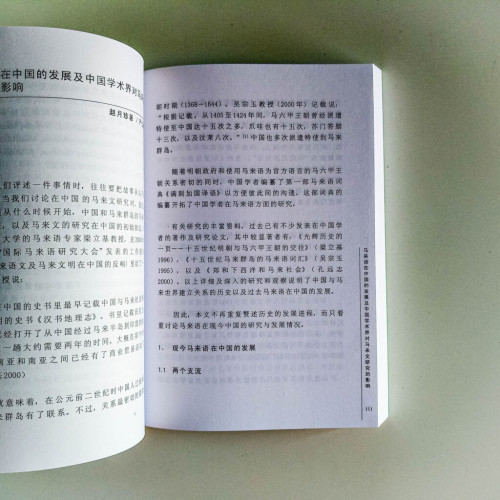 在中国的发展及中国学术界对马
影响
赵月珍著
们评述一件事情时，往往要把故事
当我们讨论在中国的马来文研究时，
从什么时候开始，中国和马来群岛的
，以及马来文的研究在中国的初始
大学的马来语专家梁立基教授，在200
国际马来语研究大会"发表的工作
来语文及马来文明在中国的反响
授说：
中国的史书里最早记载中国与马来
明的史书《汉书地理志》。书里记载
已经打开了从中国经过马来半岛到印度的
一趟大约需要两年的时间，大概在
南亚和南亚之间已经有了商业贸易
2000）
就意味着，在公元前二世纪时中国人已经
来群岛有了联系。不过，关系最密切的
朝时期（1368－1644）。吴宗玉教授（2000年）记载说，
"根据记载，从1405至1424年间，马六甲王朝曾经派遣
特使至中国达十五次之多，爪哇也有十五次，苏门答腊
十三次，以及汶莱八次。"[1]中国也多次派遣特使到马来
群岛。
随着明朝政府和使用马来语为官方语言的马六甲王
朝关系密切的同时，中国学者编纂了第一部马来语词
典《满剌加国译语》以方便彼此间的沟通。这部词典的
编纂开拓了中国学者在马来语方面的研究。
有关研究的丰富资料，过去已有不少发表在中国学
者的著作及研究论文，其中较显著者有：《光辉历史的
一页——十五世纪明朝与马六甲王朝的交往》（梁立基
1996），《十五世纪马来群岛的马来语词汇》（吴宗玉
1995），以及《郑和下西洋和马来社会》（孔远志
2000）。以上详细及深入的研究和观察说明了中国与马
来世界建立关系的历史以及过去马来语在中国的发展。
因此，本文不再重复赘述历史的发展进程，而只着
重讨论马来语在现今中国的研究与发展情况。
1. 现今马来语在中国的发展
1.1 两个支流
马来语在中国的发展及中国学术界对马来文研究的影响
151